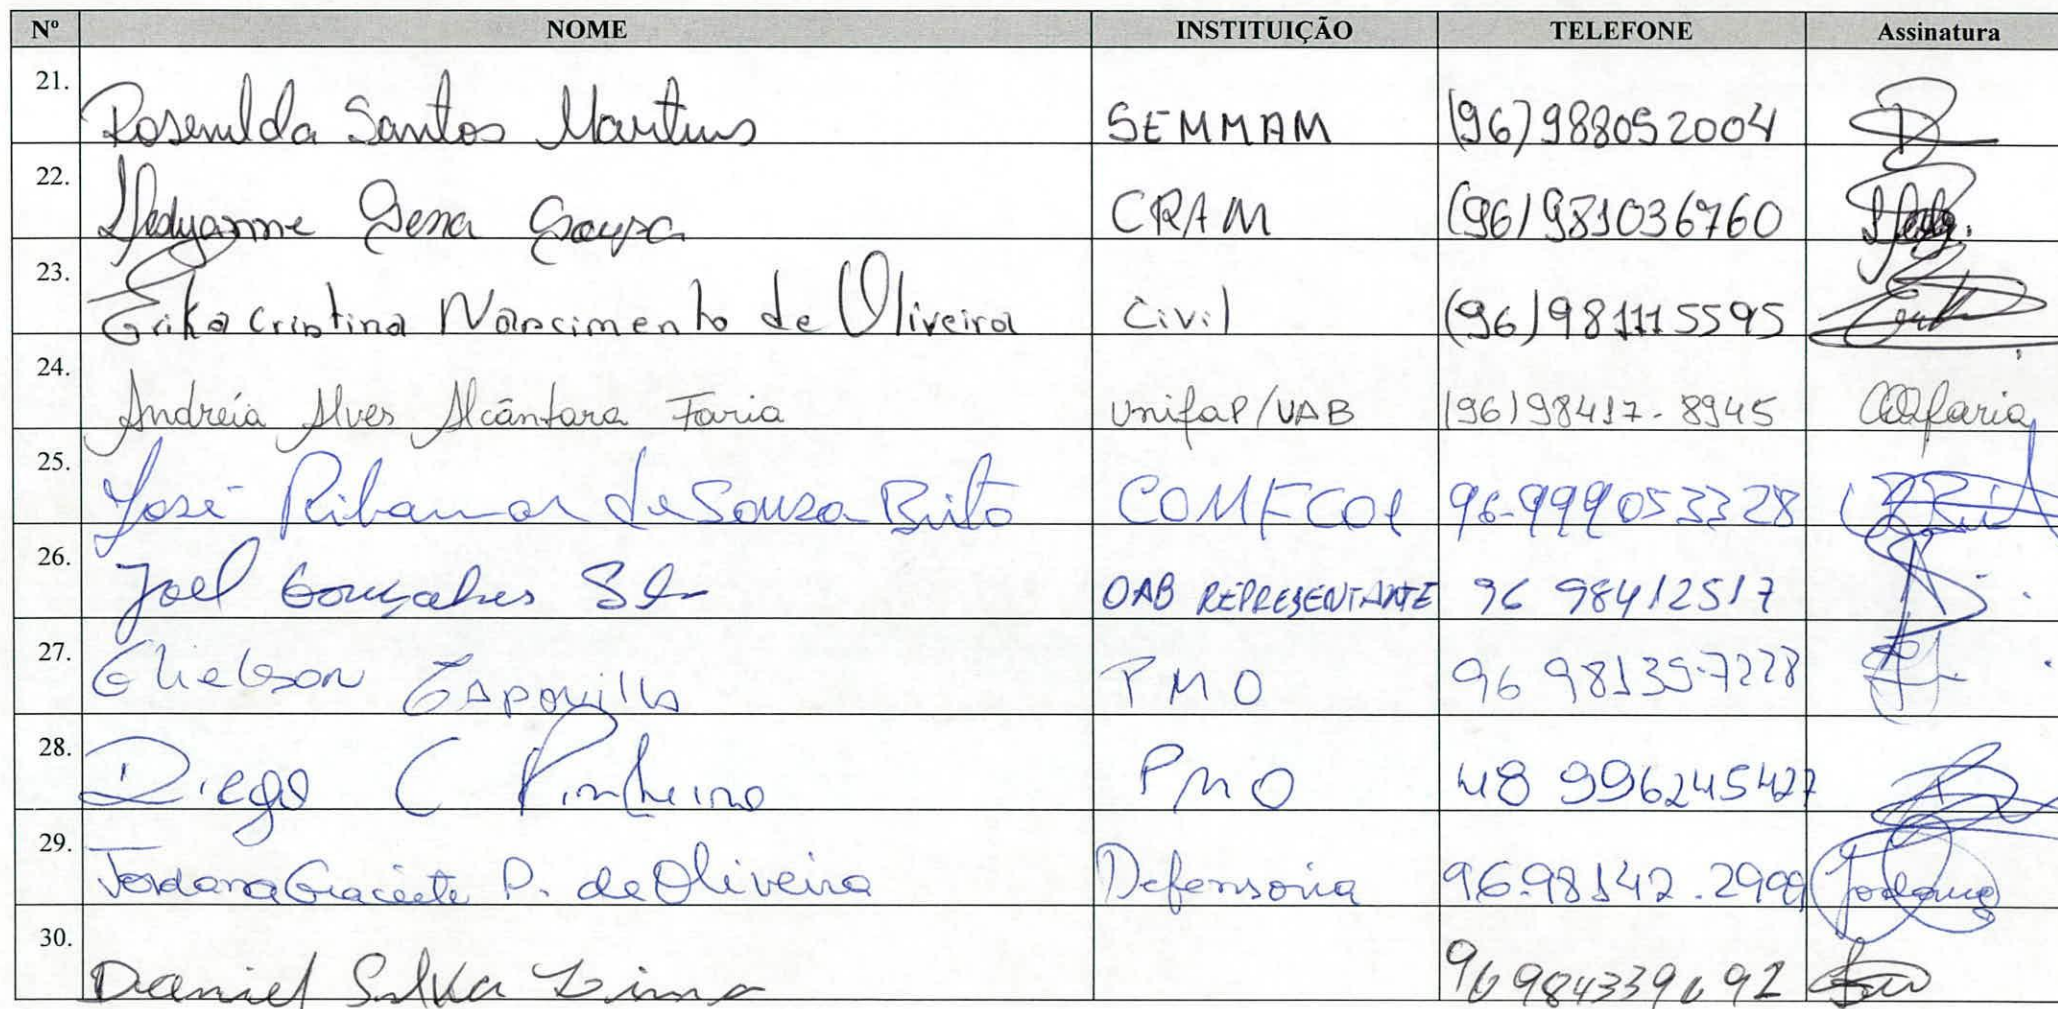 Nº NOME INSTITUIÇÃO TELEFONE Assinatura
21. Rosenilda Santos Martins SEMMAM (96) 988052004
22. Sena CRAM (96) 981036760
23. Erika Cristina Nascimento de Oliveira Civil (96) 981115595
24. Andréia Alves Alcântara Faria Unifap/UAB (96) 98417-8945 AAAfaria
25. José Ribamar de Souza Brito 96-999053328
26. Joel Gonçalves OAB REPRESENTANTE 96 98412517
27. PMO 96 98135-7228
28. Diego C Pinheiro PMO 48 996245427
29. P. de Oliveira Defensoria 96.98142. Jordana
30. Daniel Silva Lima